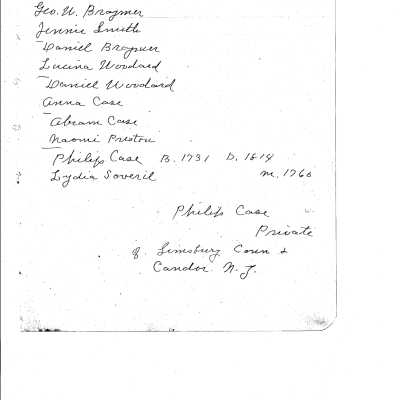 Geo. W. Brazmer
Jennie Smith
Daniel Brazmer
Lucina Woodard
Daniel Woodard
Anna Case
Abram Case
Naomi Preston
Philip Case B. 1731 D. 1819
Lydia Soveril m. 1760
Philip Case
Private
of Simsburg Conn &
Candor N.Y.